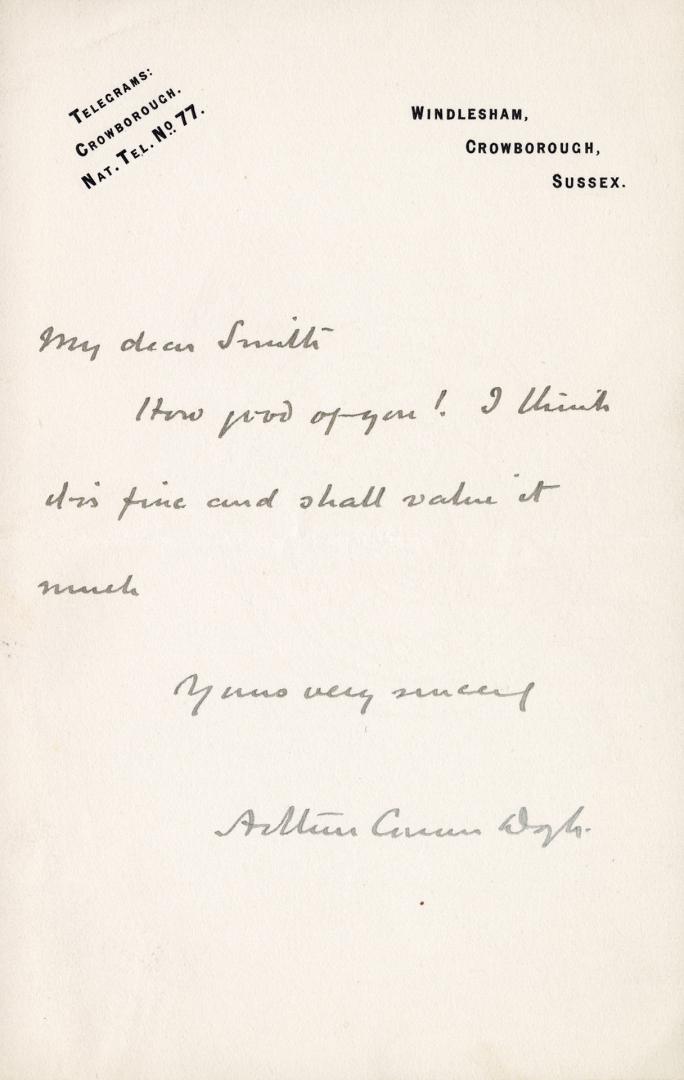 TELEGRAMS:
CROWBOROUGH.
NAT. TEL. No. 77.
WINDLESHAM,
CROWBOROUGH,
SUSSEX.
My dear Smith
How good of you! I think
it is fine and shall value it
much
Yours very sincerely
Arthur Conan Doyle.